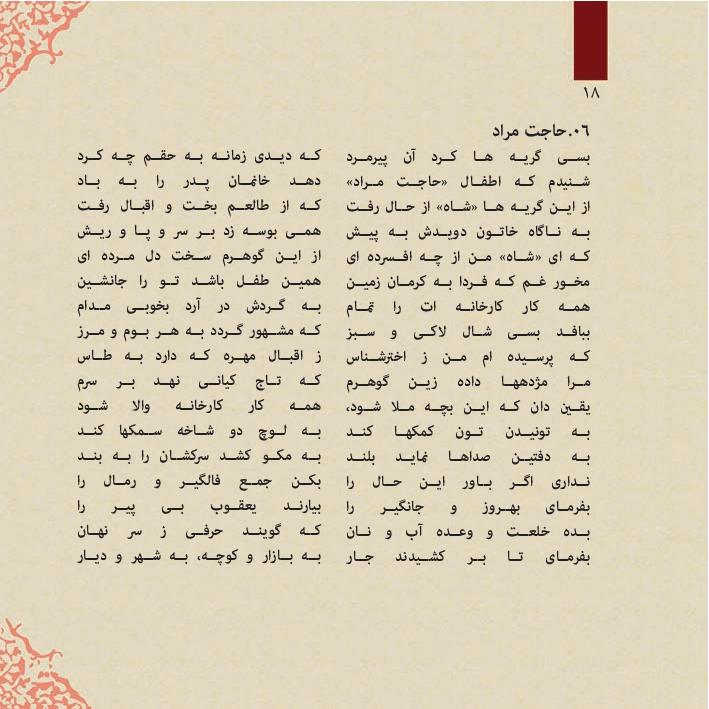 ۱۸
۰۶.حاجت مراد
بسی گریه ها کرد آن پیرمرد که دیدی زمانه به حقم چه کرد
شنیدم که اطفال «حاجت مراد» دهد خانمان پدر را به باد
از این گریه ها «شاه» از حال رفت که از طالعم بخت و اقبال رفت
به ناگاه خاتون دویدش به پیش همی بوسه زد بر سر و پا و ریش
که ای «شاه» من از چه افسرده ای از این گوهرم سخت دل مرده ای
مخور غم که فردا به کرمان زمین همین طفل باشد تو را جانشین
همه کار کارخانه ات را تمام به گردش در آرد بخوبی مدام
ببافد بسی شال لاکی و سبز که مشهور گردد به هر بوم و مرز
که پرسیده ام من ز اخترشناس ز اقبال مهره که دارد به طاس
مرا مژدهها داده زین گوهرم که تاج کیانی نهد بر سرم
یقین دان که این بچه ملا شود، همه کار کارخانه والا شود
به تونیدن تون کمکها کند به لوچ دو شاخه سمکها کند
به دفتین صداها نماید بلند به مکو کشد سرکشان را به بند
نداری اگر باور این حال را بکن جمع فالگیر و رمال را
بفرمای بهروز و جانگیر را بیارند یعقوب بی پیر را
بده خلعت و وعده آب و نان که گویند حرفی ز سر نهان
بفرمای تا بر کشیدند جار به بازار و کوچه، به شهر و دیار